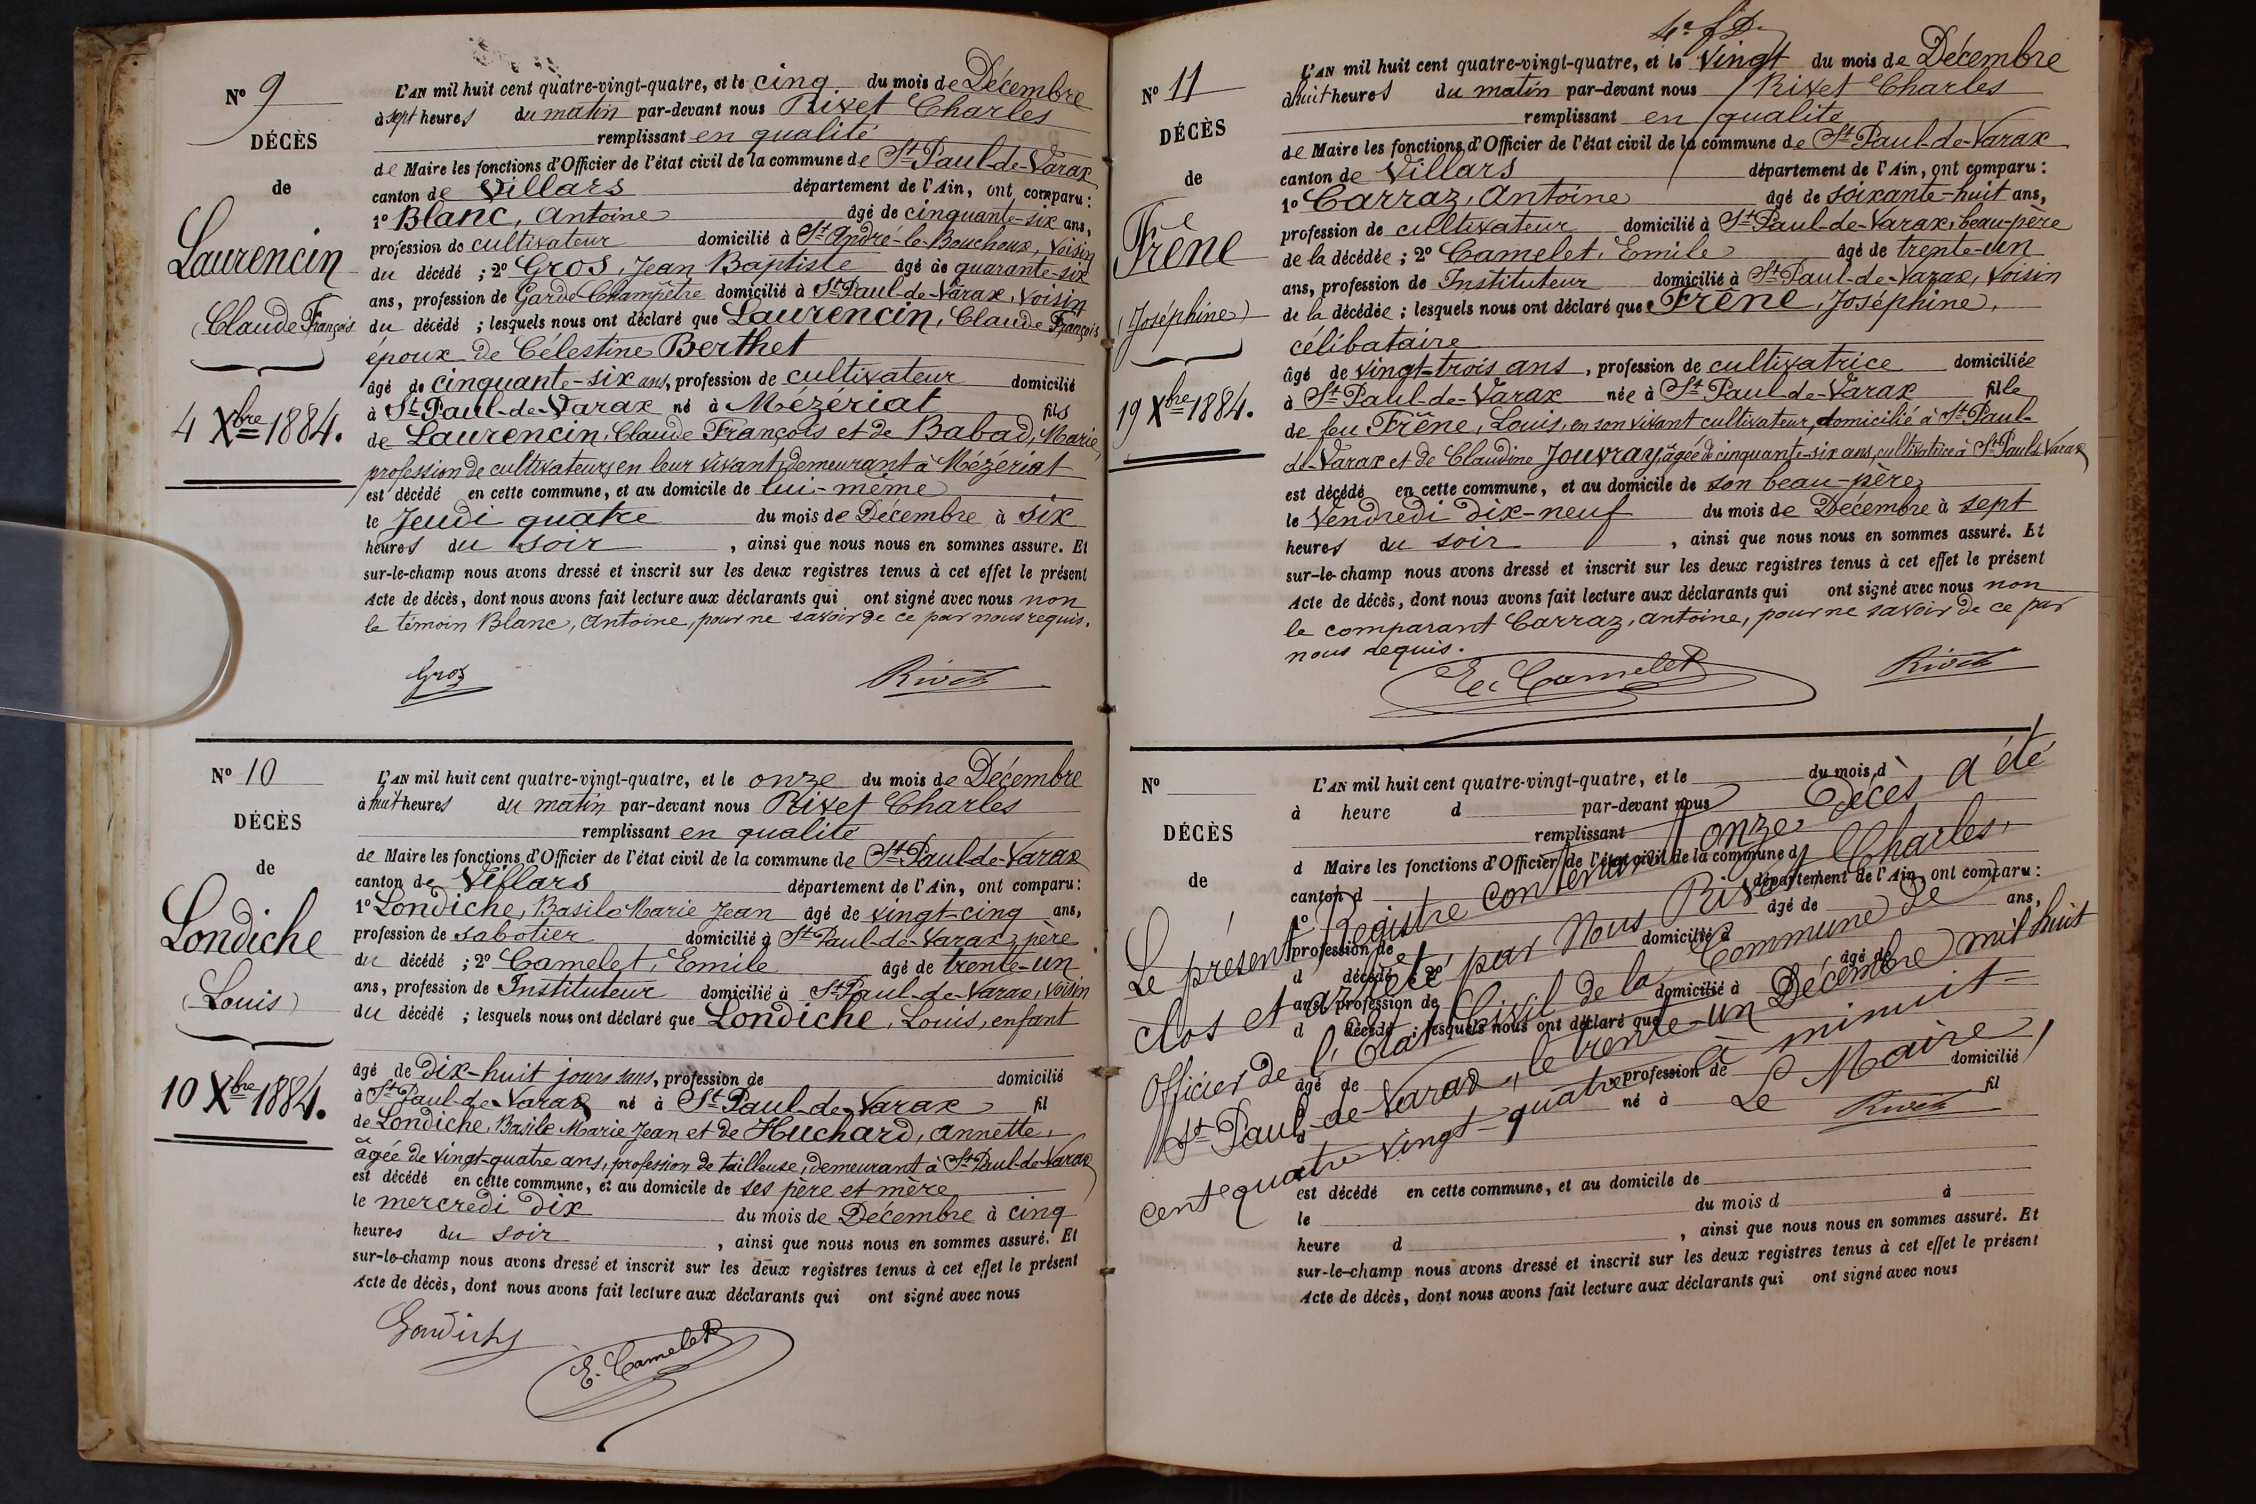 N° 9
DÉCÈS
de
Laurencin
(Claude François)
4 Xbre 1884.
L'AN mil huit cent quatre-vingt-quatre, et le cinq du mois de Décembre
à sept heures du matin par-devant nous Rivet Charles
remplissant en qualité
de Maire les fonctions d'Officier de l'état civil de la commune de St Paul-de-Varax
canton de Villars département de l'Ain, ont comparu :
1° Blanc, Antoine âgé de cinquante-six ans,
profession de cultivateur domicilié à St André-le-Bouchoux, voisin
du décédé ; 2° Gros, Jean Baptiste âgé de quarante-six
ans, profession de Garde-Champêtre domicilié à St Paul-de-Varax, voisin
du décédé ; lesquels nous ont déclaré que Laurencin, Claude François
époux de Célestine Berthet
âgé de cinquante-six ans, profession de cultivateur domicilié
à St Paul-de-Varax né à Mézériat fils
de Laurencin, Claude François et de Babad, Marie,
profession de cultivateurs en leur vivant, demeurant à Mézériat
est décédé en cette commune, et au domicile de lui-même
le Jeudi quatre du mois de Décembre à six
heures du soir , ainsi que nous nous en sommes assuré. Et
sur-le-champ nous avons dressé et inscrit sur les deux registres tenus à cet effet le présent
Acte de décès, dont nous avons fait lecture aux déclarants qui ont signé avec nous non
le témoin Blanc, Antoine, pour ne savoir de ce par nous requis.
Gros Rivet
N° 10
DÉCÈS
de
Londiche
(Louis)
10 Xbre 1884.
L'AN mil huit cent quatre-vingt-quatre, et le onze du mois de Décembre
à huit heures du matin par-devant nous Rivet Charles
remplissant en qualité
de Maire les fonctions d'Officier de l'état civil de la commune de St Paul-de-Varax
canton de Villars département de l'Ain, ont comparu :
1° Londiche, Basile Marie Jean âgé de vingt-cinq ans,
profession de sabotier domicilié à St Paul-de-Varax, père
du décédé ; 2° Camelet, Emile âgé de trente-un
ans, profession de Instituteur domicilié à St Paul-de-Varax, voisin
du décédé ; lesquels nous ont déclaré que Londiche, Louis, enfant
âgé de dix-huit jours sans, profession de domicilié
à St Paul-de-Varax né à St Paul-de-Varax fil
de Londiche, Basile Marie Jean et de Huchard, Annette,
âgée de vingt-quatre ans, profession de tailleuse, demeurant à St Paul-de-Varax
est décédé en cette commune, et au domicile de ses père et mère
le mercredi dix du mois de Décembre à cinq
heures du soir , ainsi que nous nous en sommes assuré. Et
sur-le-champ nous avons dressé et inscrit sur les deux registres tenus à cet effet le présent
Acte de décès, dont nous avons fait lecture aux déclarants qui ont signé avec nous
Londiche
E. Camelet
N° 11
DÉCÈS
de
Frêne
(Joséphine)
19 Xbre 1884.
L'AN mil huit cent quatre-vingt-quatre, et le Vingt du mois de Décembre
à huit heures du matin par-devant nous Rivet Charles
remplissant en qualité
de Maire les fonctions d'Officier de l'état civil de la commune de St Paul-de-Varax
canton de Villars département de l'Ain, ont comparu :
1° Carraz, Antoine âgé de soixante-huit ans,
profession de cultivateur domicilié à St Paul-de-Varax, beau-père
de la décédée ; 2° Camelet, Emile âgé de trente-un
ans, profession de Instituteur domicilié à St Paul-de-Varax, voisin
de la décédée ; lesquels nous ont déclaré que Frêne, Joséphine,
célibataire
âgé de vingt-trois ans, profession de cultivatrice domiciliée
à St Paul-de-Varax née à St Paul-de-Varax fille
de feu Frêne, Louis, en son vivant cultivateur, domicilié à St Paul-
de-Varax et de Claudine Jouvray, âgée de cinquante-six ans, cultivatrice à St Paul de Varax
est décédé en cette commune, et au domicile de son beau-père
le Vendredi dix-neuf du mois de Décembre à sept
heures du soir , ainsi que nous nous en sommes assuré. Et
sur-le-champ nous avons dressé et inscrit sur les deux registres tenus à cet effet le présent
Acte de décès, dont nous avons fait lecture aux déclarants qui ont signé avec nous non
le comparant Carraz, Antoine, pour ne savoir de ce par
nous requis.
E. Camelet Rivet
N°
DÉCÈS
de
L'AN mil huit cent quatre-vingt-quatre, et le du mois d
à heure d par-devant nous
remplissant
d Maire les fonctions d'Officier de l'état civil de la commune d
canton d département de l'Ain, ont comparu :
1° âgé de ans,
profession de domicilié à
d décédé ; 2° âgé de
ans, profession de domicilié à
d décédé ; lesquels nous ont déclaré que
âgé de profession de domicilié
à né à fil
d
est décédé en cette commune, et au domicile de
le du mois d à
heure d , ainsi que nous nous en sommes assuré. Et
sur-le-champ nous avons dressé et inscrit sur les deux registres tenus à cet effet le présent
Acte de décès, dont nous avons fait lecture aux déclarants qui ont signé avec nous
Le présent Registre contenant onze Décès a été
clos et arrêté par Nous Rivet Charles,
Officier de l'Etat Civil de la Commune de
St Paul-de-Varax, le trente-un Décembre mil huit
cent quatre vingt-quatre à minuit
Le Maire
Rivet